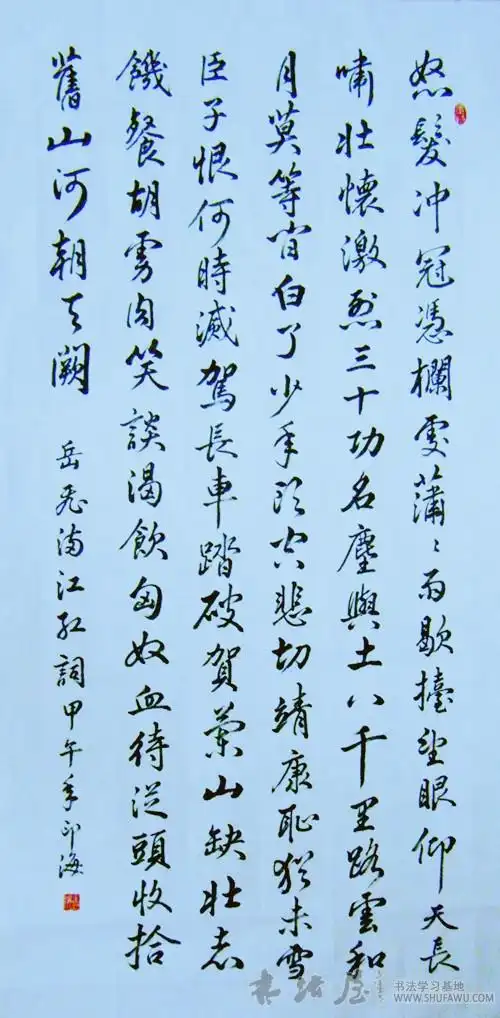 怒髮冲冠憑欄處瀟〻雨歇擡望眼仰天長
嘯壯懷激烈三十功名塵與土八千里路雲和
月莫等閒白了少年頭空悲切靖康恥猶未雪
臣子恨何時滅駕長車踏破賀蘭山缺壯志
饑餐胡虜肉笑談渴飲匈奴血待從頭收拾
舊山河朝天闕
岳飛滿江紅詞甲午年印海
书法屋
书法学习基地
WWW.SHUFAWU.COM